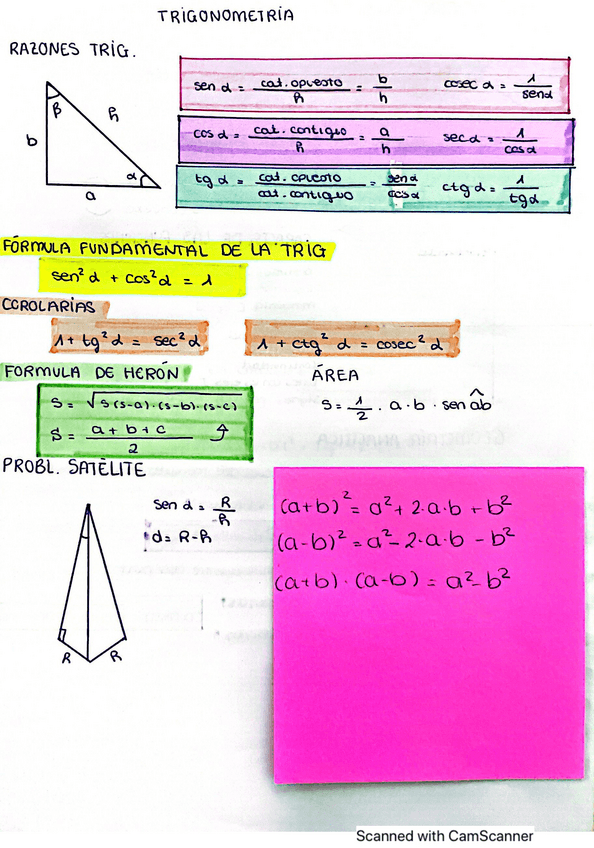 TRIGONOMETRÍA
RAZONES TRIG.
β
h
b
α
a
sen α = cat. opuesto / h = b / h cosec α = 1 / sen α
cos α = cat. contiguo / h = a / h sec α = 1 / cos α
tg α = cat. opuesto / cat. contiguo = sen α / cos α ctg α = 1 / tg α
FÓRMULA FUNDAMENTAL DE LA TRIG
sen² α + cos² α = 1
COROLARIAS
1 + tg² α = sec² α 1 + ctg² α = cosec² α
FORMULA DE HERÓN
S = √s(s-a)·(s-b)·(s-c)
S = a + b + c / 2
ÁREA
S = 1/2 · a · b · sen âb
PROBL. SATÉLITE
sen α = R / h
d = R - h
R R
(a+b)² = a² + 2·a·b + b²
(a-b)² = a² - 2·a·b - b²
(a+b)·(a-b) = a² - b²
Scanned with CamScanner